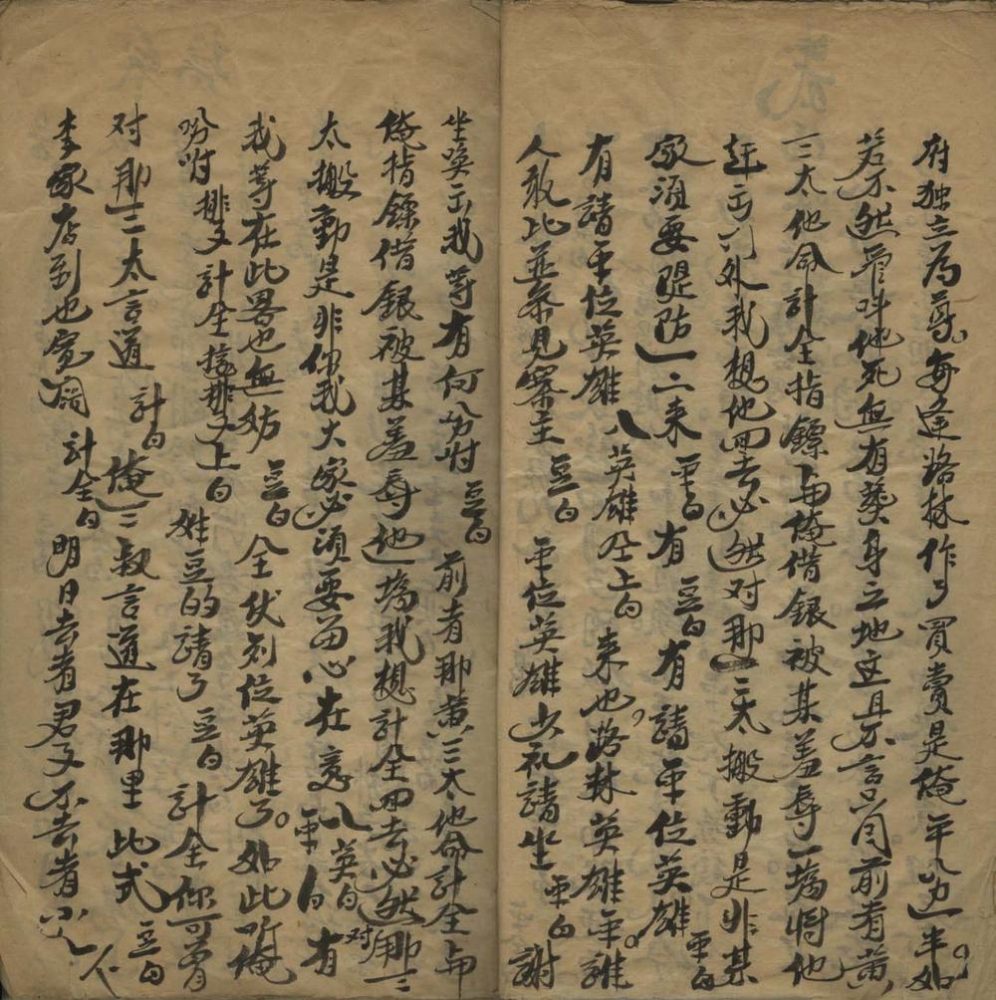 府独立為尊。每逢路林作了買賣是俺平分一半如
若不然管叫他死無有葬身之地这且不言只因前者黄
三太他命計全指鏢上与俺借銀被某羞辱一塲將他
赶出门外我想他回去必然对那三太搬動是非某
家須要隄防一二来 平白 有 豆白 有請平位英雄 平白
有請平位英雄 八英雄仝上白 来也路林英雄平。誰
人敢比並参見寨主 豆白 平位英雄少礼請坐 平白 謝
坐喚出我等有何分咐 豆白 前者那黄三太他命計全与
俺指鏢借銀被某羞辱他一塲我想計全回去必然对那三
太搬動是非你我大家必須要留心在意 八英白 平白 有
我等在此畧也無妨 豆白 全伏列位英雄了。如此听俺
吩咐 排叉 計全接排叉上白 姓豆的請了 豆白 計全你可曾
对那三太言道 計白 俺三叔言道在那里比式 豆白
李家店到也寬濶 計全白 明日去者君子不去者小人